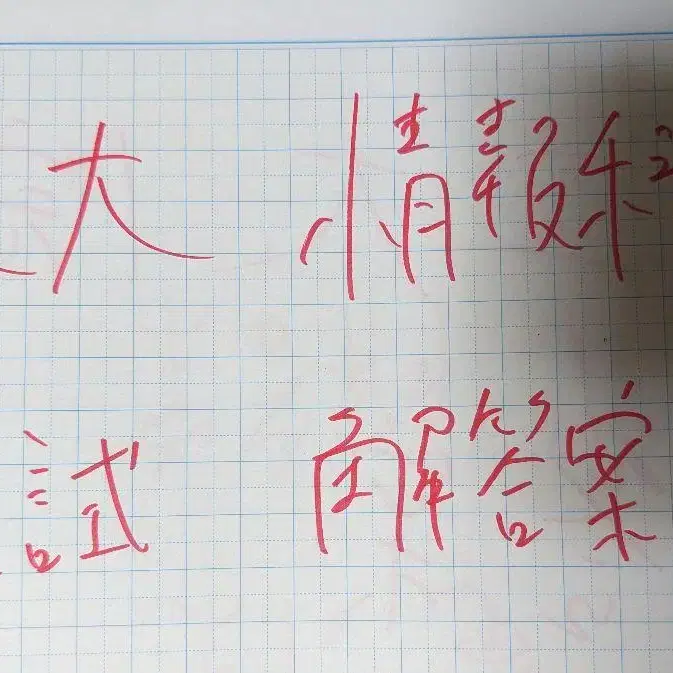 大 情報科
試 解答案